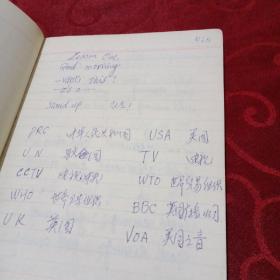 Lesson One
Good morning
What's this?
It's a
Stand up
PRC 中华人民共和国 USA 美国
U.N. 联合国 TV 电视
CCTV WTO 世界贸易组织
WHO 世界卫生组织 BBC 英国广播公司
UK 英国 VOA 美国之音